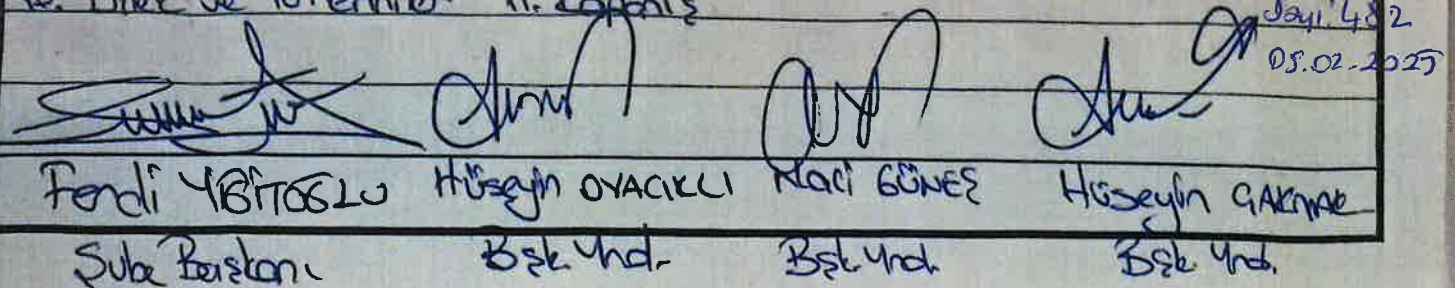 ve
Sayı: 482
05.02.2025
Fendi YİĞİTOĞLU Hüseyin OYACIKLI Naci GÜNEŞ Hüseyin ÇAKMAK
Şube Başkanı Bşk. Yrd. Bşk. Yrd. Bşk. Yrd.